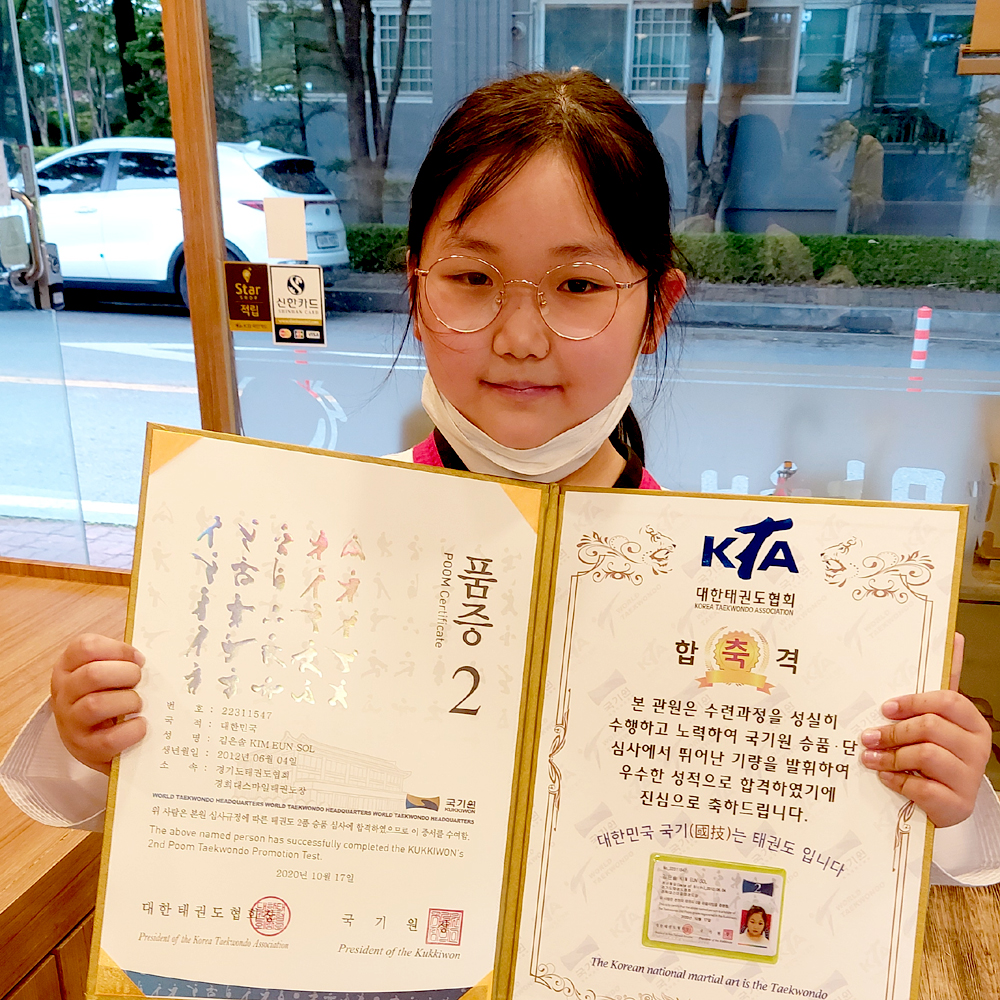 Star
SHOP
적립
신한카드
SHINHAN CARD
VISA
품증
POOM Certificate
2
번 호 : 22311547
국 적 : 대한민국
성 명 : 김은솔 KIM EUN SOL
생년월일 : 2012년 06월 04일
소 속 : 경기도태권도협회
경희대스마일태권도장
WORLD TAEKWONDO HEADQUARTERS WORLD TAEKWONDO HEADQUARTERS WORLD TAEKWONDO HEADQUARTERS
국기원
KUKKIWON
위 사람은 본원 심사규정에 따른 태권도 2품 승품 심사에 합격하였으므로 이 증서를 수여함.
The above named person has successfully completed the KUKKIWON's
2nd Poom Taekwondo Promotion Test.
2020년 10월 17일
대한태권도협회장
President of the Korea Taekwondo Association
국 기 원 장
President of the Kukkiwon
KTA
대한태권도협회
KOREA TAEKWONDO ASSOCIATION
합 축 격
본 관원은 수련과정을 성실히
수행하고 노력하여 국기원 승품·단
심사에서 뛰어난 기량을 발휘하여
우수한 성적으로 합격하였기에
진심으로 축하드립니다.
대한민국 국기(國技)는 태권도 입니다
2
The Korean national martial art is the Taekwondo